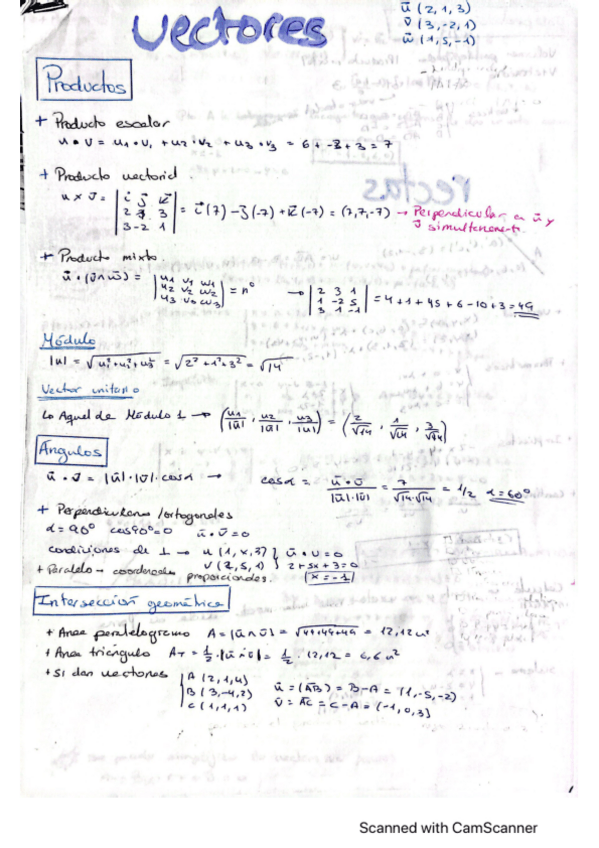 vectores
ū (2, 1, 3)
v̄ (3, -2, 1)
w̄ (1, 5, -1)
Productos
+ Producto escalar
u • v = u1 • v1 + u2 • v2 + u3 • v3 = 6 + -2 + 3 = 7
+ Producto vectorial
= i(7) - j(-7) + k(-7) = (7, 7, -7) → Perpendicular a ū y
+ Producto mixto
ū • (v̄ ∧ w̄) = | u1 v1 w1 | = nº → | 2 3 1 | = 4 + 1 + 45 + 6 - 10 + 3 = 49
| u2 v2 w2 | | 1 -2 5 |
| u3 v3 w3 | | 3 1 -1 |
Módulo
|u| = √u1² + u2² + u3² = √2² + 1² + 3² = √14
Vector unitario
↳ Aquel de Módulo 1 → (u1/|ū|, u2/|ū|, u3/|ū|) = (2/√14, 1/√14, 3/√14)
Ángulos
ū • v̄ = |ū| • |v̄| • cos α → cos α = ū • v̄ / |ū| • |v̄| = 7 / √14 • √14 = 1/2 α = 60º
+ Perpendiculares / ortogonales
α = 90º cos 90º = 0 ū • v̄ = 0
condiciones de ⊥ → u (1, x, 3) } ū • v = 0
v (2, 5, 1) } 2 + 5x + 3 = 0
+ Paralelo → coordenadas proporcionales. x = -1
Intersección geométrica
+ Area paralelogramo A = |ū ∧ v̄| = √49+49+49 = 12,12 u²
+ Area triángulo AT = 1/2 • |ū ∧ v̄| = 1/2 • 12,12 = 6,6 u²
+ Si dan vectores { A (2, 1, 4)
B (3, -4, 2) ū = (AB) = B - A = (1, -5, -2)
C (1, 1, 1) v̄ = AC = C - A = (-1, 0, 3]
Scanned with CamScanner